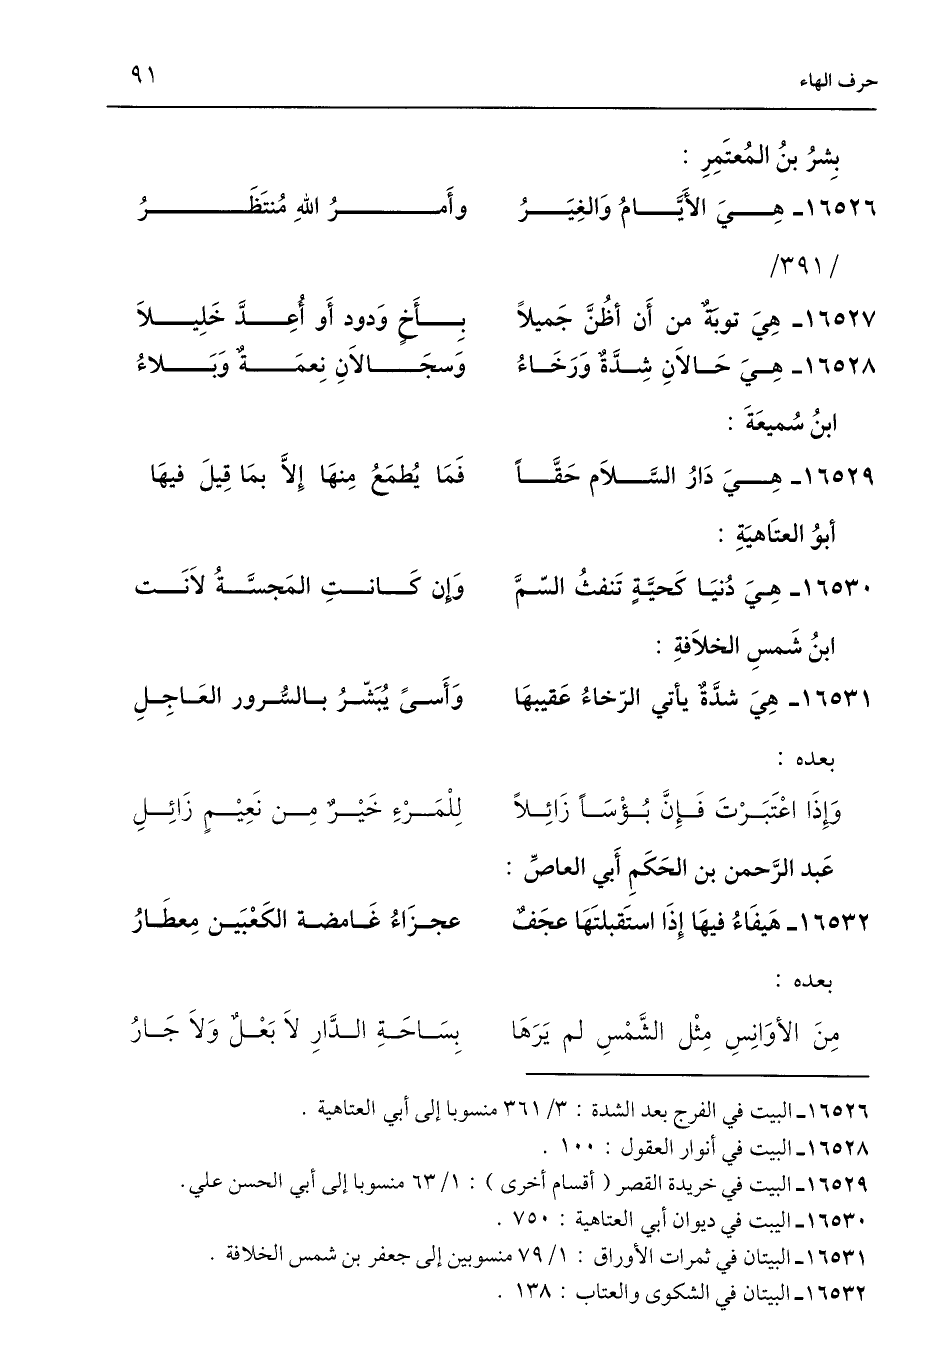 حرف الهاء ٩١
بِشرُ بنُ المُعتَمِرِ :
١٦٥٢٦ـ هِـيَ الأَيَّـامُ وَالغِيَـرُ وأَمـرُ اللهِ مُنتَظَـرُ
/٣٩١/
١٦٥٢٧ـ هِيَ توبَةٌ من أن أظُنَّ جَميلاً بِـأَخٍ وَدود أو أُعِـدَّ خَلِيـلاَ
١٦٥٢٨ـ هِـيَ حَـالاَنِ شِدَّةٌ وَرَخَـاءُ وَسجَـالاَنِ نِعمَـةٌ وَبَـلاءُ
ابنُ سُميعَةَ :
١٦٥٢٩ـ هِـيَ دَارُ السَّـلاَم حَقَّـاً فَمَا يُطمَعُ مِنهَا إلاَّ بمَا قِيلَ فيهَا
أبوُ العتَاهيَةِ :
١٦٥٣٠ـ هِيَ دُنيَـا كَحيَّـةٍ تَنفثُ السّـمَّ وَإن كَـانـتِ المَجسَّـةُ لاَنَـت
ابنُ شَمسِ الخلاَفةِ :
١٦٥٣١ـ هِيَ شدَّةٌ يأتي الرّخاءُ عَقيبهَا وَأَسـىً يُبَشّـرُ بـالسُّـرور العَـاجِـلِ
بعده :
وَإِذَا اعْتَبَـرْتَ فَـإِنَّ بُـؤْسَـاً زَائِـلاً لِلْمَـرْءِ خَيْـرٌ مِـن نَعِيْـمٍ زَائِـلِ
عَبد الرَّحمن بن الحَكَمِ أَبي العاصِّ :
١٦٥٣٢ـ هَيفَاءُ فيهَا إذَا استَقبلتَهَا عجَفٌ عجـزَاءُ غَـامضـة الكَعْبَيـن مِعطَـارُ
بعده :
مِنَ الأوَانِسِ مِثْل الشَّمْسِ لم يَرَهَا بِسَـاحَـةِ الـدَّارِ لاَ بَعْـلٌ وَلاَ جَـارُ
١٦٥٢٦ـ البيت في الفرج بعد الشدة : ٣/ ٣٦١ منسوبا إلى أبي العتاهية .
١٦٥٢٨ـ البيت في أنوار العقول : ١٠٠ .
١٦٥٢٩ـ البيت في خريدة القصر ( أقسام أخرى ) : ١/ ٦٣ منسوبا إلى أبي الحسن علي.
١٦٥٣٠ـ البيت في ديوان أبي العتاهية : ٧٥٠ .
١٦٥٣١ـ البيتان في ثمرات الأوراق : ١/ ٧٩ منسوبين إلى جعفر بن شمس الخلافة .
١٦٥٣٢ـ البيتان في الشكوى والعتاب : ١٣٨ .